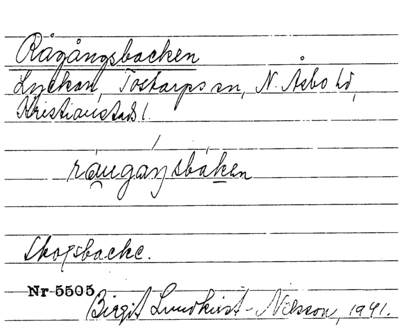 Rågångsbacken
Lyckan, Tostarps sn, N. Åsbo hd,
Kristianstads l.
råugåŋsbáken
Skogsbacke.
Nr 5505
Birgit Lundkvist-Nilsson, 1941.